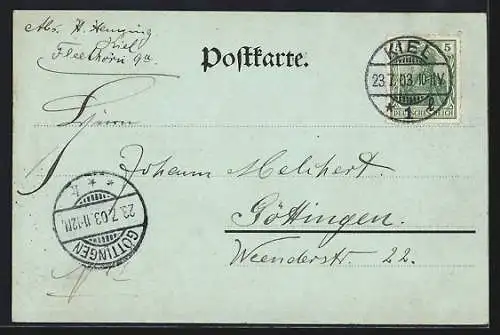 Abs. H. Henning
Kiel
Fleethörn 9a.
Postkarte.
KIEL
23.7.03.10-11V.
* 1 *
5
DEUTSCHES REICH
Johann Melchert.
Göttingen.
Weenderstr. 22.
GÖTTINGEN
23.7.03.11-12N.